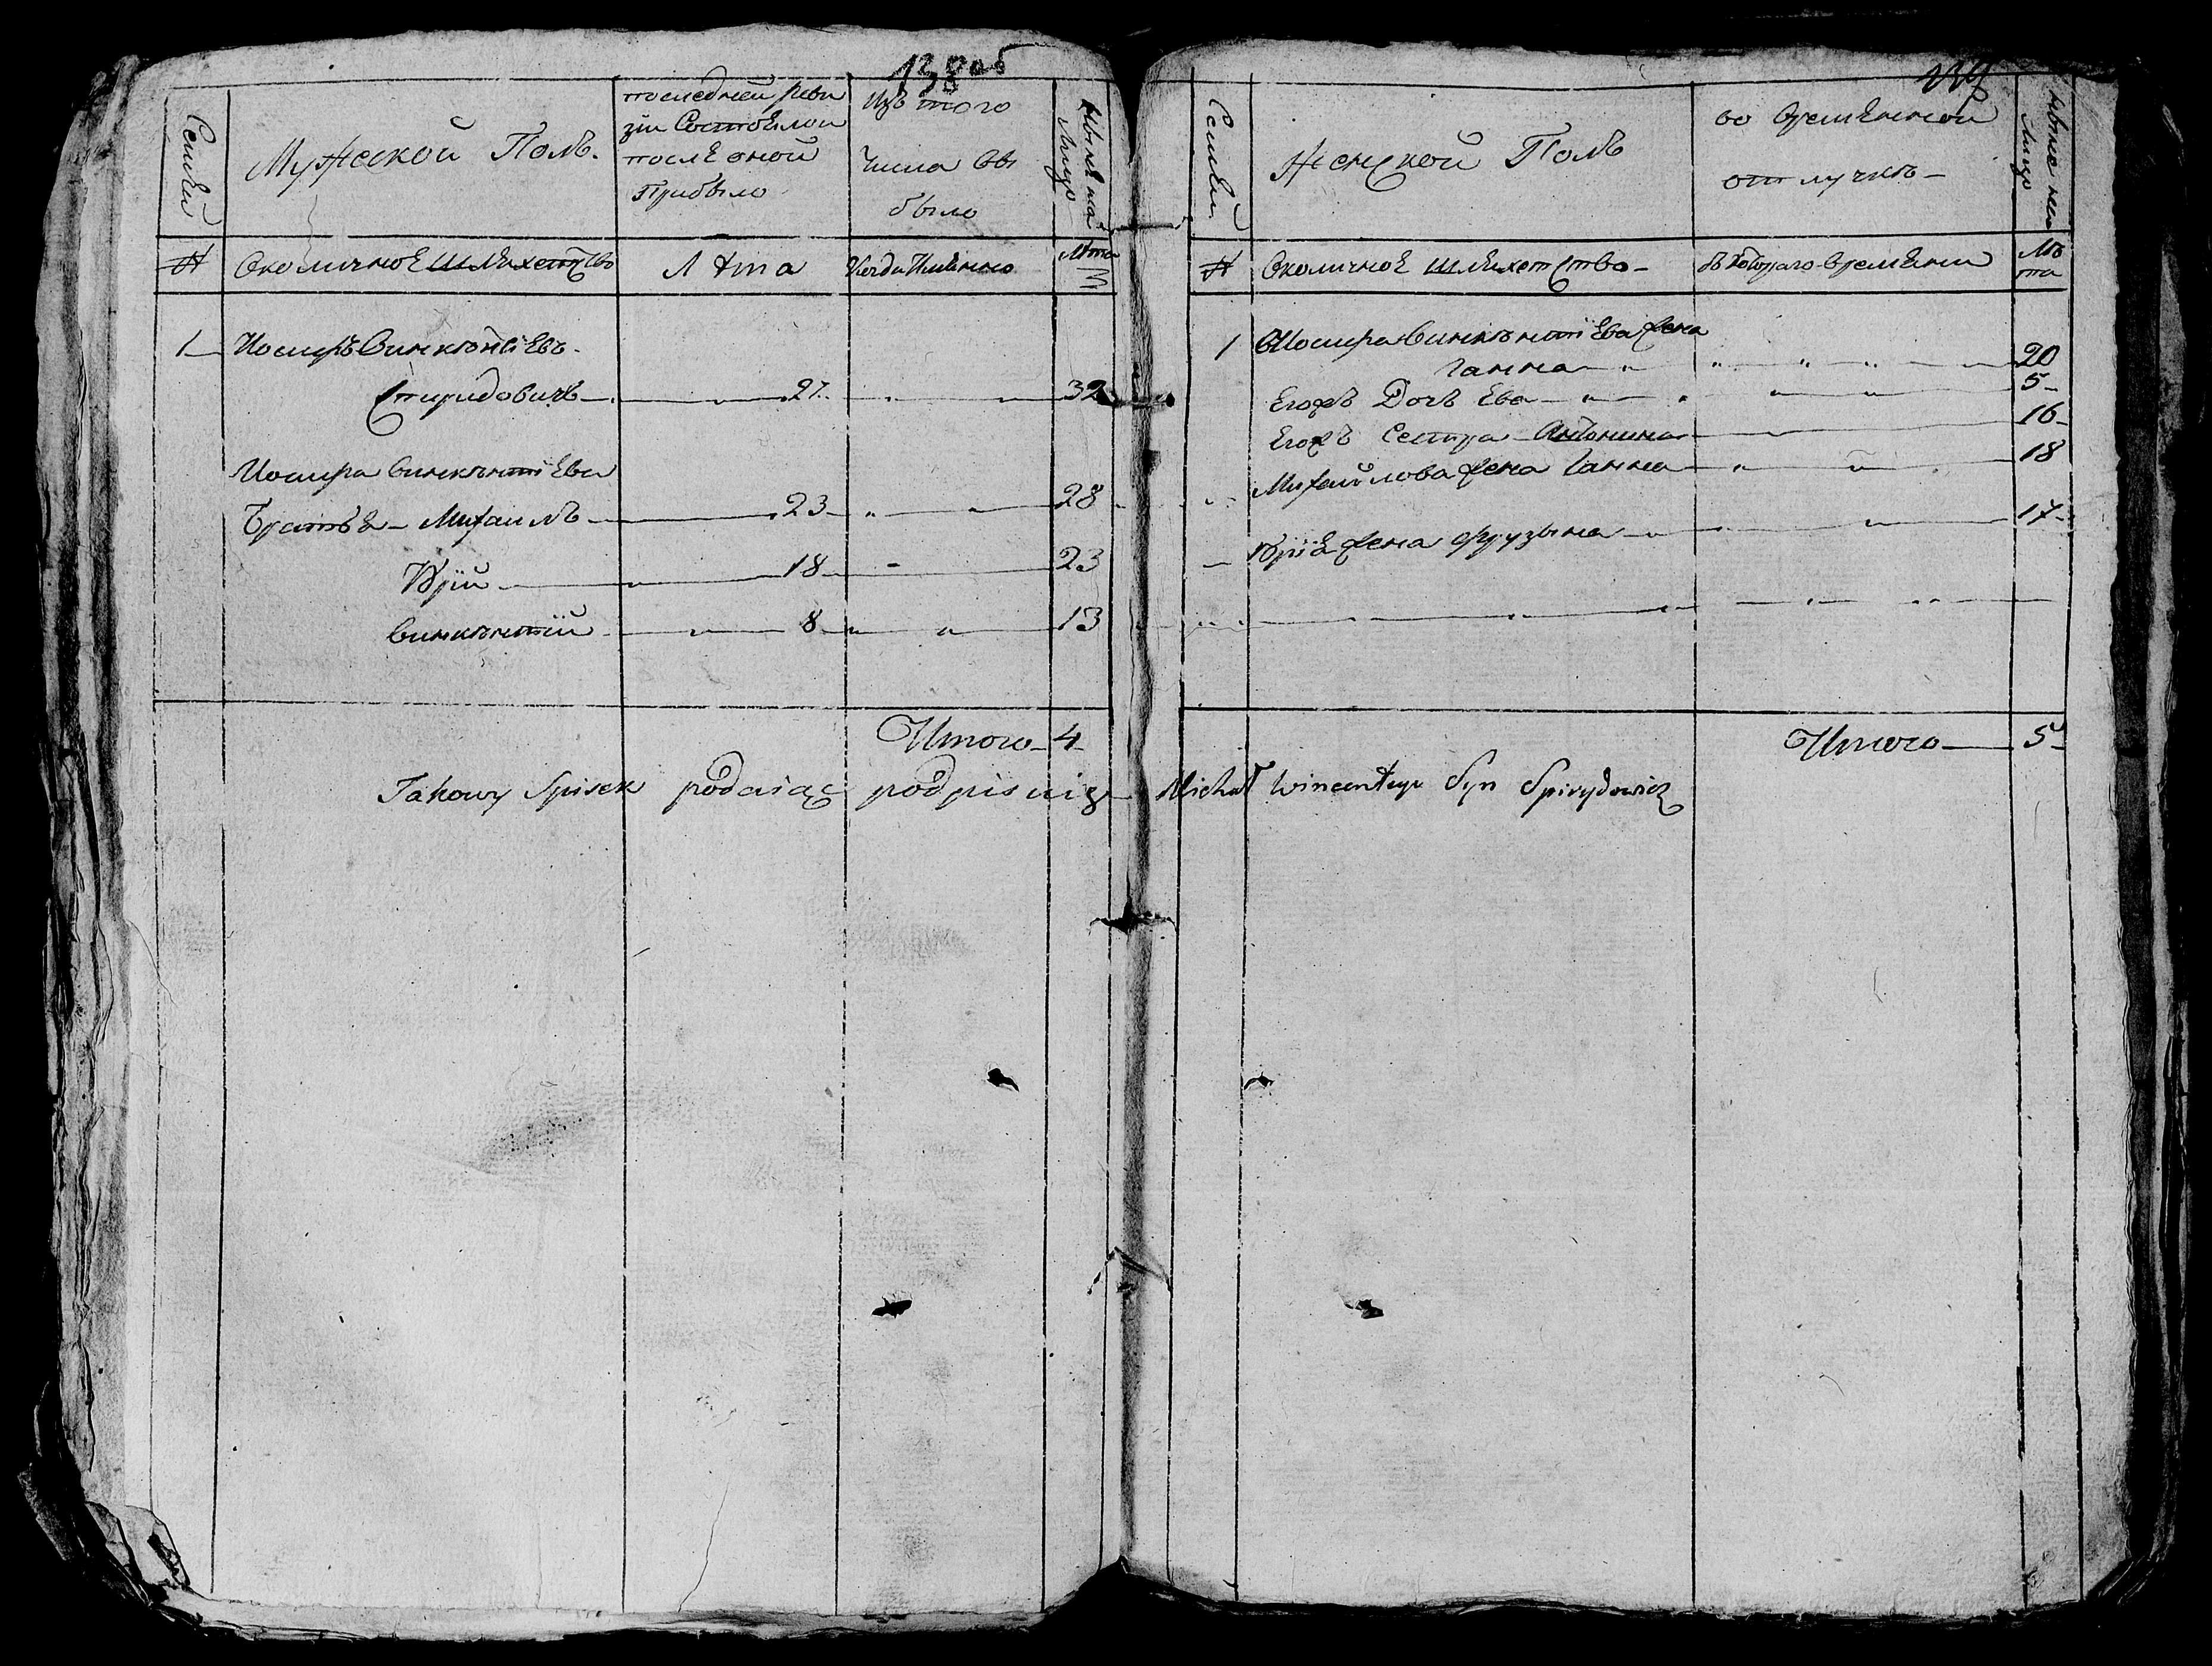 138 об
Семьи
Мужеской Полъ.
последней реви
зіи Состоялои
после оной
Прибыло
Изъ того
числа вы
было
Ныне на
Лицо
№
Околичное Шляхетство
Лѣта
Когда Имянно
Лѣта
1 Иосифъ Винкентіевъ
Спиридовичъ 27 32
Иосифа Винкентіева
Братья Михаилъ 23 28
Юрій 18 23
Винкентій 8 13
Итого 4
139
Семьи
Женской Полъ
во временной
отлучке
Ныне на
Лицо
№
Околичное Шляхетство
съ которого времени
Лѣ
та
1 Иосифа Винкентіева жена
Ганна 20
Егожъ Дочь Ева 5
Егожъ Сестра Антонина 16
Михайлова жена Ганна 18
Юрія жена Фрузына 17
Итого 5
Takowy Spisek podaiąc podpisuię Michał Wincentego Syn Spirydowicz